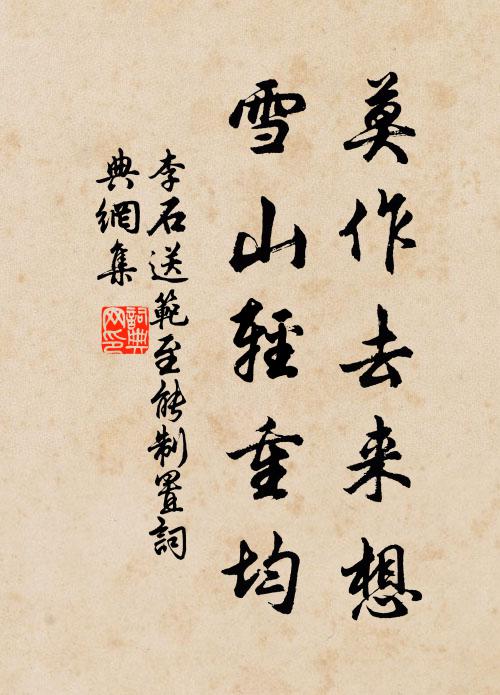 莫作去来想
雪山輕重均
李石送範至能制置詞
典網集
詞典
网印